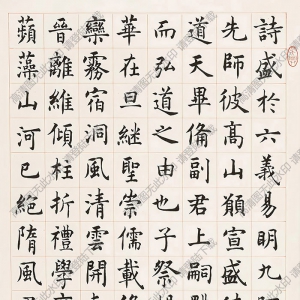 詩盛於六義易明九
先師彼髙山顏宣盛
道天畢備副君上嗣
而弘道之由也子祭
華在旦継聖崇儒載
欒霧宿洞風清雲開
晉離維傾柱折禮學
蘋藻山河已絕隋風